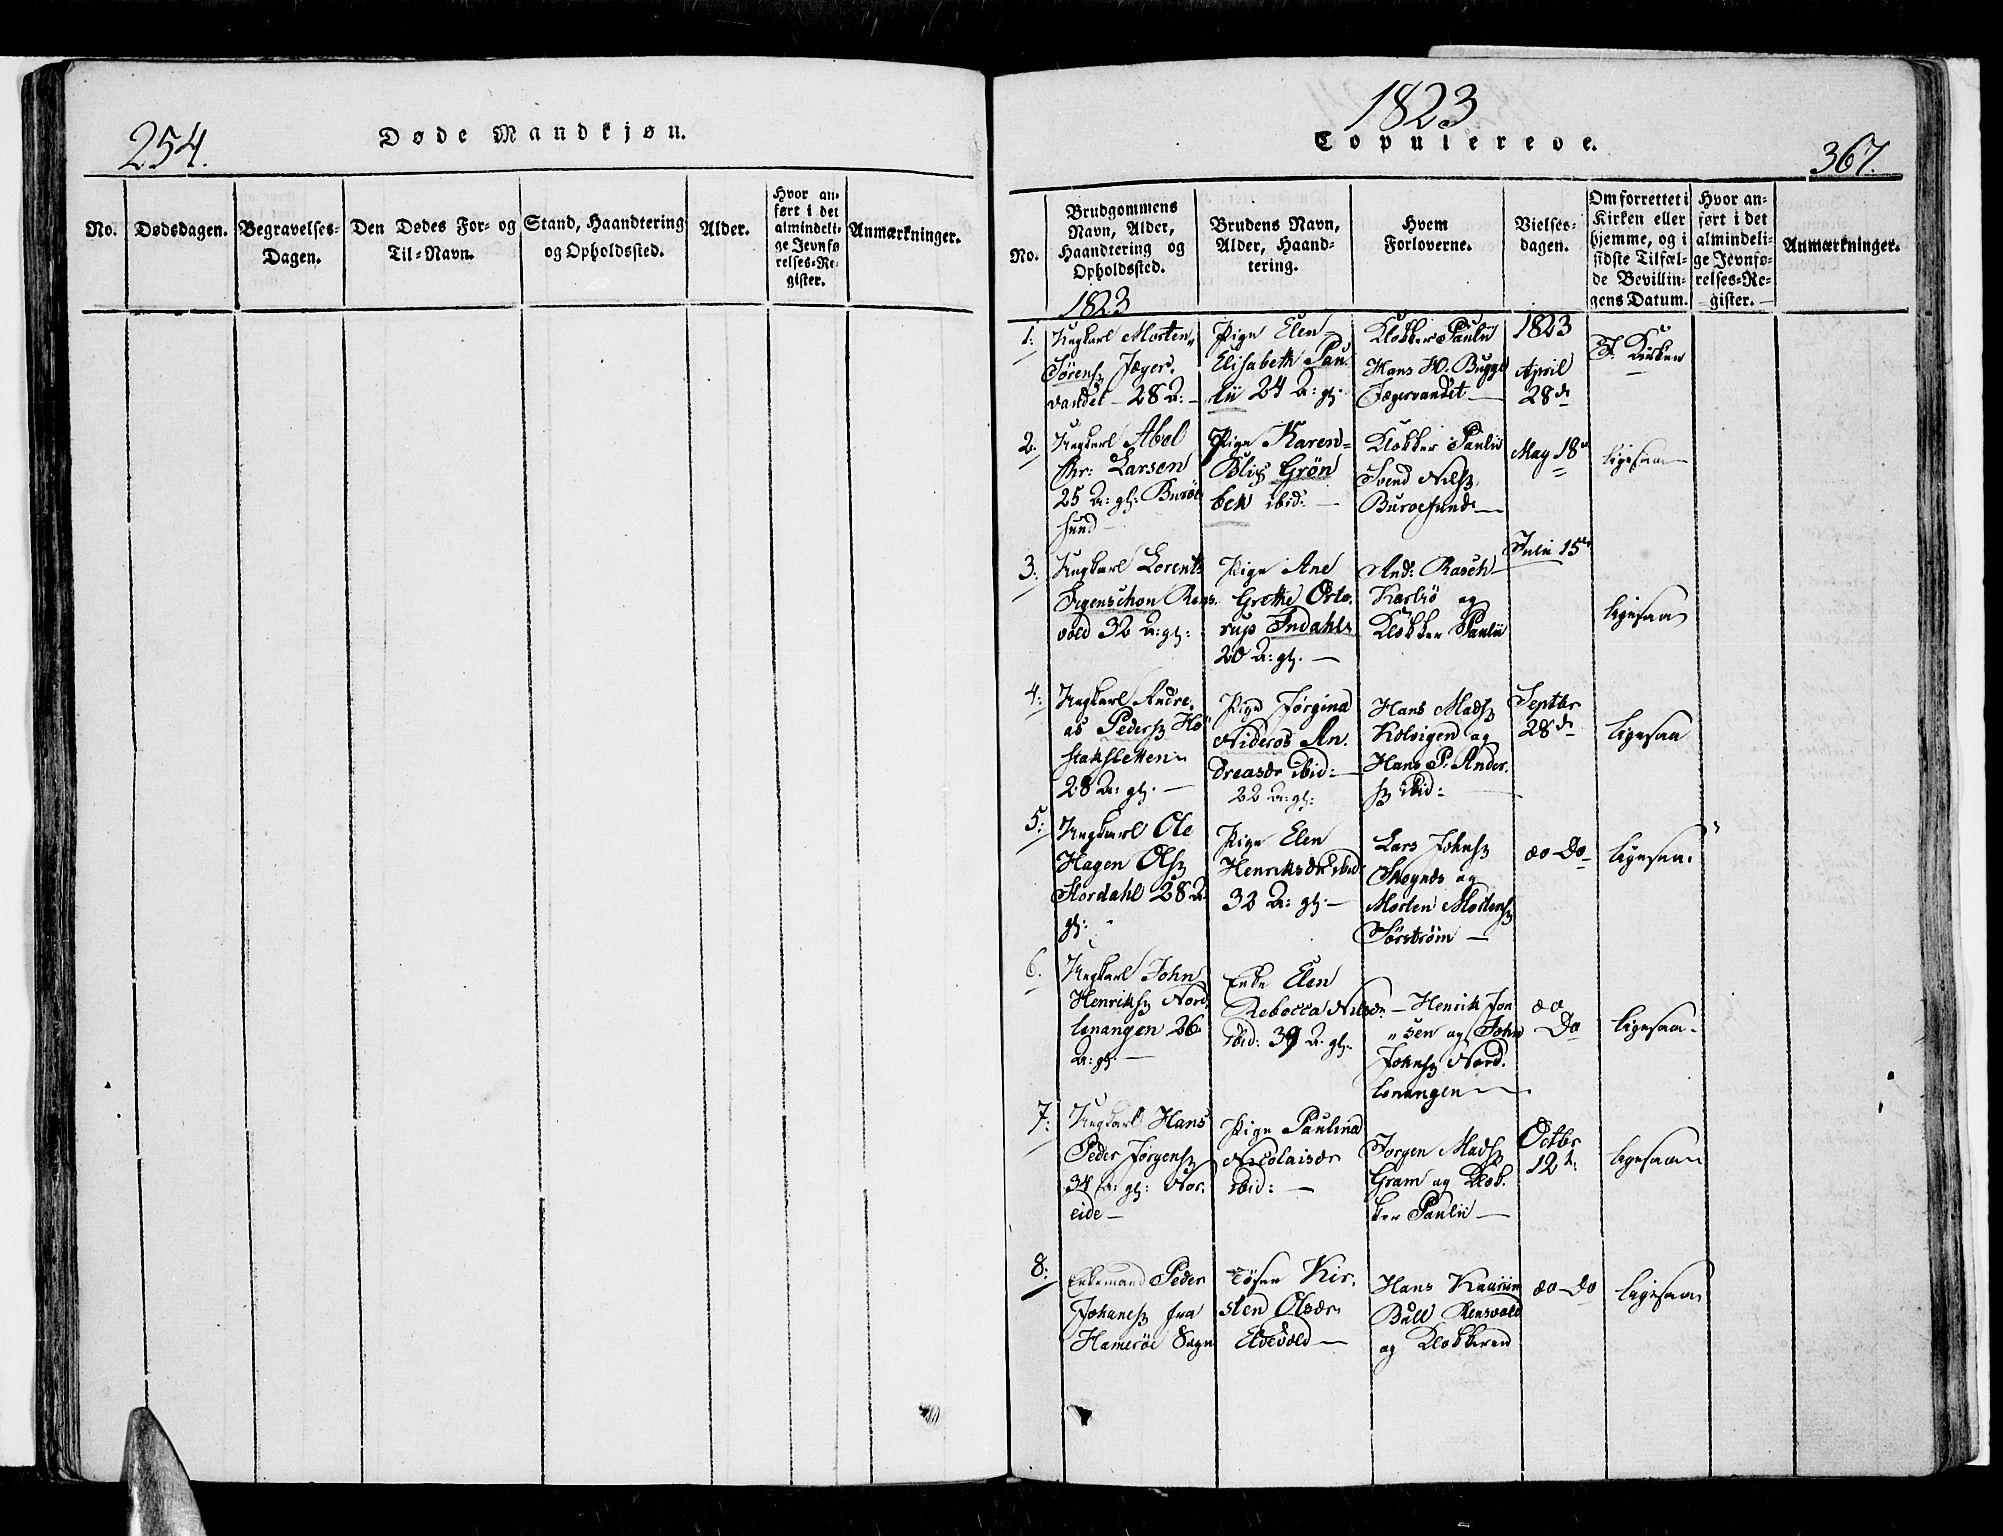 254.
Døde Mandkjøn.
No.
Dødsdagen.
Begravelses-
Dagen.
Den Dødes For- og
Til-Navn.
Stand, Haandtering
og Opholdssted.
Alder.
Hvor an-
ført i det
almindeli-
ge Jevnfø-
relses-Re-
gister.
Anmærkninger.
1823
Copulerede.
367.
No.
Brudgommens
Navn, Alder,
Haandtering og
Opholdssted.
Brudens Navn,
Alder, Haand-
tering.
Hvem
Forloverne.
Vielses-
dagen.
Om forrettet i
Kirken eller
hjemme, og i
sidste Tilfæl-
de Bevillin-
gens Datum.
Hvor an-
ført i det
almindeli-
ge Jevnfø-
relses-Re-
gister.
Anmærkninger.
1823
1:
Ungkarl Morten
Sørens Jæger-
vandet - 28 A:
Pige Elen
Elisabeth Pau
lii 24 A: gl:
Klokker Paulii
Hans H. Bugge
Jægervandet
1823
April
28de
I Kirken
2.
Ungkarl Abel
Chr: Larsen
25 A: gl: Buröe
sund
Pige Karen
Blix Grön
bek ibid:
Klokker Paulii
Svend Nils
Buroesund
May 18de
ligesaa
3:
Ungkarl Lorents
Irgenschon Rens
vold 32 A: gl:
Pige Ane
Grethe Orto
rup Indahl
20 A: gl.
And: Rasch
Karlsö og
Klokker Paulii
Julii 15de
ligesaa
4:
Ungkarl Andre
as Peders Hö
stakletten
28 A: gl.
Pige Jørgina
Nideros An
dreasdr ibid:
22 A: gl:
Hans Mads
Kolvigen og
Hans P. Ander
s ibid:
Septbr
28de
ligesaa
5:
Ungkarl Ole
Hagen Ols
Stordahl 28 A
gl:
Pige Elen
Henriksdr ibid:
32 A: gl:
Lars Johns
Skognes og
Morten Mortens
Sørstrøm
do Do
ligesaa
6.
Ungkarl John
Henriks Nord
lenangen 26
A: gl:
Enke Elen
Rebecca Nilsdr
ibid: 39 A. gl:
Henrik Jon
sen og John
Johns Nord
lenangen
do
Do
ligesaa
7:
Ungkarl Hans
Peder Jørgens
34 A: gl: Nor
eide
Pige Paulina
Nicolaisdr
ibid:
Jorgen Mads
Gram og Klok
ker Paulii
Octbr
12te
ligesaa
8:
Enkemand Peder
Johanes fra
Hamerøe Sogn
Tøsen Kir
sten Olsdr
Elvevold
Hans Kaarin
Bull Rensvold
og Klokkeren
do Do
ligesaa